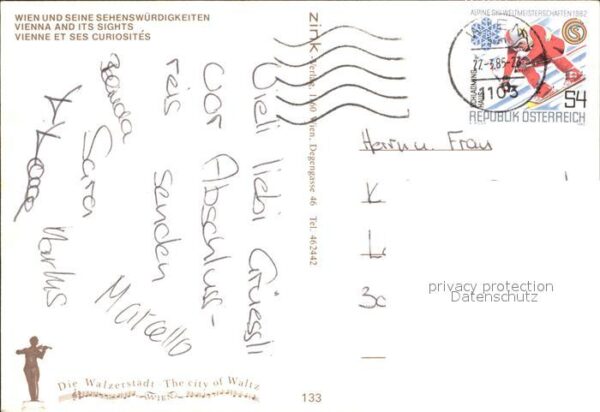 WIEN UND SEINE SEHENSWÜRDIGKEITEN
VIENNA AND ITS SIGHTS
VIENNE ET SES CURIOSITÉS
Vieli liebi Grüessli
vor Abschluss-
reis senden
Sara
Markus
Marcello
zink Verlag, 1160 Wien, Degengasse 46 Tel. 462442
ALPINE SKI-WELTMEISTERSCHAFTEN 1982
SCHLADMING
HAUS
S4
REPUBLIK ÖSTERREICH
1103
Herrn u. Frau
K
L
3c
privacy protection
Datenschutz
Die Walzerstadt The city of Waltz
WIEN
133